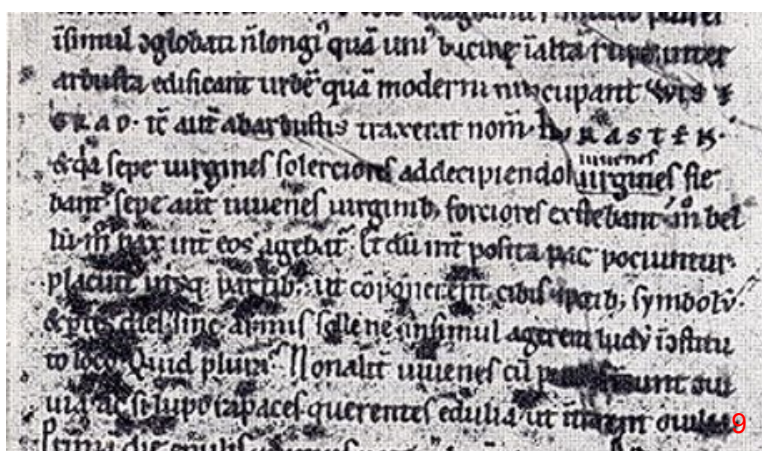 īsimul ɔglobati n̄longi᾽ quā uni᾽ bucine īalta rupe inter
arbusta edificant urbē quā moderni nuncupant WIS E
GRAD. tc̄ aut̄ abarbustis traxerat nom̄ hVRASTEN.
& q̇a sepe uirgines solerciores addecipiendos iuuenes uirgines fie
bant. sepe aut̄ iuuenes uirginib; forciores exstebant. m̊ bel
lū. m̊ pax int̄ eos agebat᷑. Et dū int̄ posita pac pociuntur.
placuit utrisq; partib; ut cōponerent cibis potib; symbolū.
& p tres dies sine armis sollēne insimul agerent ludū īɔstitu
to loco. Quid plura? Non alit̄ iuuenes cū ineunt ɔui
uia ac si lupi rapaces querentes edulia ut intrarent ouilia
9